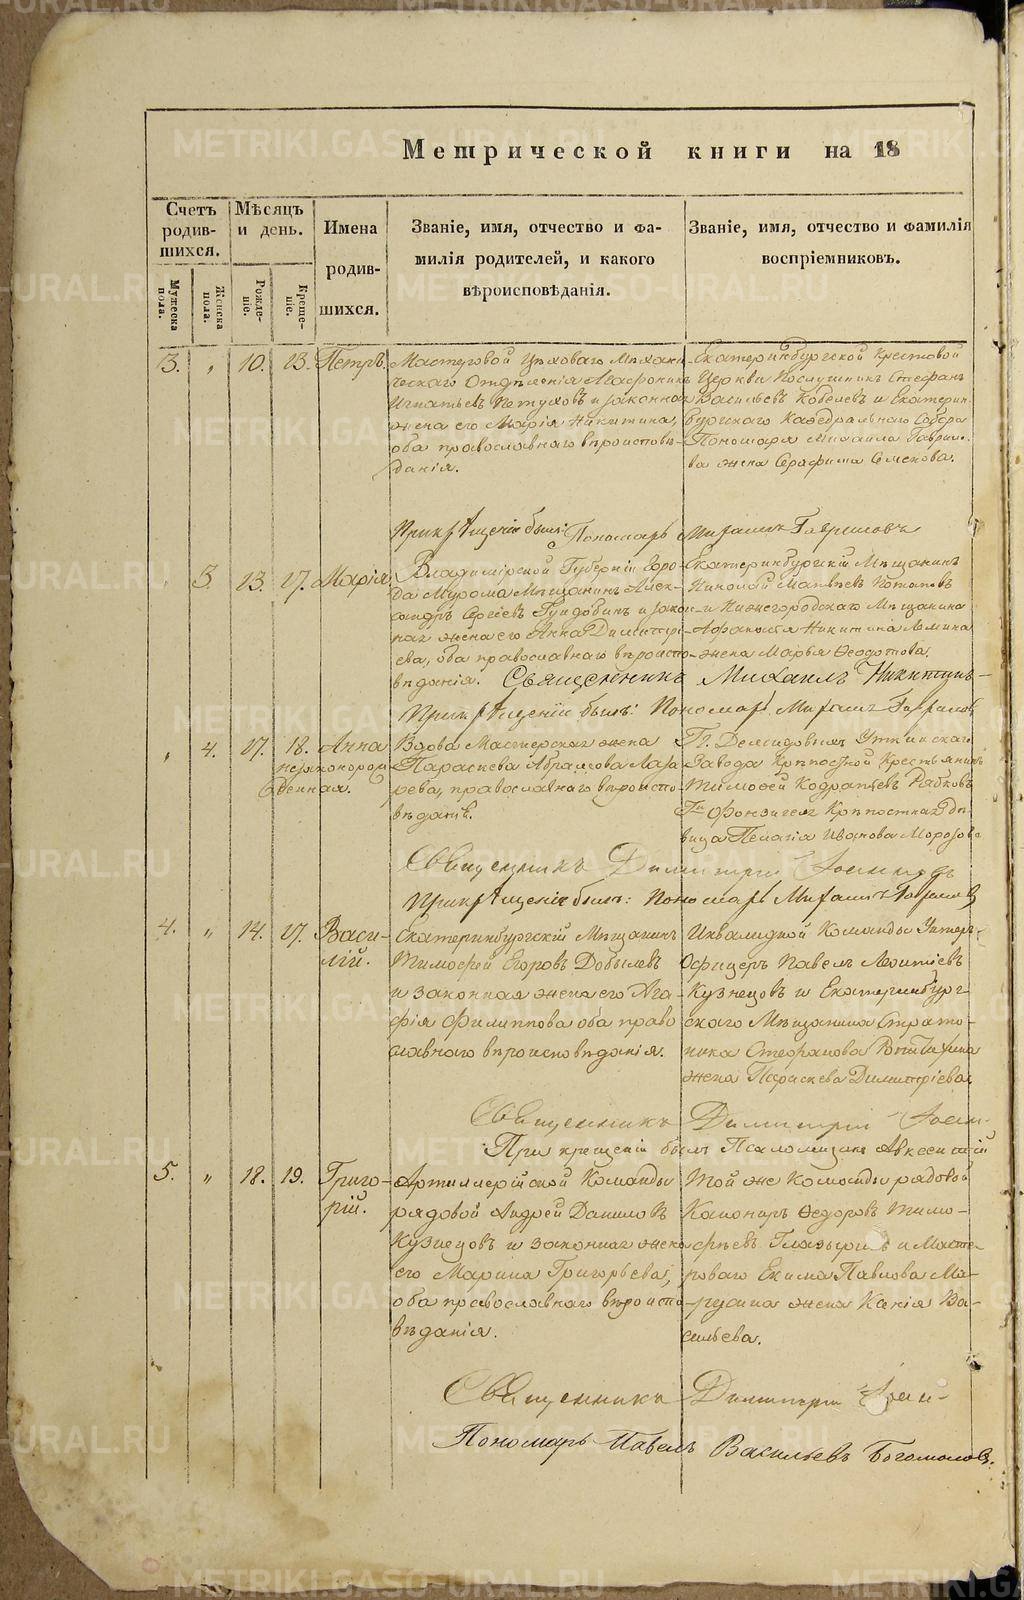 Метрической книги на 18
Счетъ родившихся.
Мѣсяцъ и день.
Имена родившихся.
Званіе, имя, отчество и фамилія родителей, и какого вѣроисповѣданія.
Званіе, имя, отчество и фамилія воспріемниковъ.
Мужеска пола.
Женска пола.
Рожденіе.
Крещеніе.
3. „ 10. 23. Петръ.
Мастеровой Цѣховаго Механи-
ческаго Отдѣленія Агафоникъ
Игнатьевъ Пѣтуховъ и законная
жена его Марія Никитина,
оба православнаго вѣроисповѣ-
данія.
Екатеринбургской Крестовой
Церкви Послушникъ Стефанъ
Васильевъ Кобелевъ и Екатерин-
бургскаго Кафедральнаго Собора
Пономаря Михаила Гаврило-
ва жена Серафима Семенова.
При крещеніи былъ: Пономарь Михаилъ Гавриловъ
„ 3 23. 27. Марія.
Владимірской Губерніи горо-
да Мурома Мѣщанинъ Алек-
сандръ Сергѣевъ Гундобинъ и закон-
ная жена его Анна Димитрі-
ева, оба православнаго вѣроиспо-
вѣданія.
Екатеринбургскій Мѣщанинъ
Николай Матвѣевъ Потаповъ
и Нижегородскаго Мѣщанина
Афанасія Никитина
жена Марья Ѳеодотова.
Священникъ Михаилъ Никитинъ
При крещеніи былъ: Пономарь Михаилъ Гавриловъ
„ 4. 27. 18. Анна
незаконорож-
денная.
Вдова Мастерская жена
Параскева Абрамова Лаза-
рева, православнаго вѣроиспо-
вѣданія.
Гг. Демидовыхъ Уткинскаго
Завода Крѣпостной Крестьянинъ
Тимофей Кодратьевъ Рябковъ
Крѣпостная дѣ-
вица Пелагія Иванова Морозова
Священникъ Димитрій
При крещеніи былъ: Пономарь Михаилъ Гавриловъ
4. „ 14. 27. Васи-
лій.
Екатеринбургскій Мѣщанинъ
Тимофей Егоровъ Добылевъ
и законная жена его Ага-
фія Филиппова оба право-
славнаго вѣроисповѣданія.
Инвалидной Команды Унтеръ-
Офицеръ Павелъ Леонтіевъ
Кузнецовъ и Екатеринбург-
скаго Мѣщанина Страто-
ника Стефанова
жена Параскева Димитріева
Священникъ Димитрій
При крещеніи былъ Псаломщикъ Авксентій
5. „ 18. 19. Григо-
рій.
Артиллерійской Команды
рядовой Андрей Даниловъ
Кузнецовъ и законная жена
его Марина Григорьева,
оба православнаго вѣроиспо-
вѣданія.
Той же Команды рядовой
Канониръ Ѳедоръ Тимо-
фѣевъ Глазыринъ и Масте-
роваго Екима Павлова Ма-
жена Ва-
сильева.
Священникъ Димитрій
Пономарь Павелъ Васильевъ Богомоловъ.
METRIKI.GASO-URAL.RU